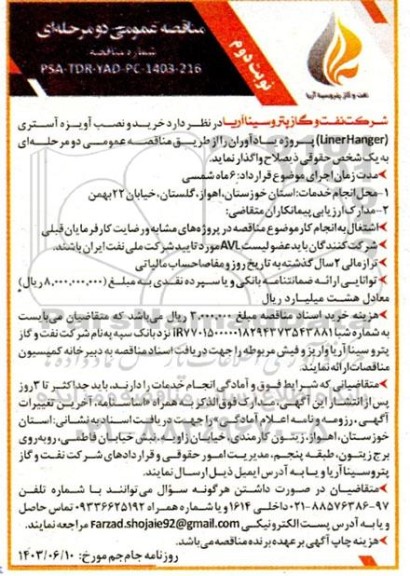 مناقصه عمومی دو مرحله‌ای
شماره مناقصه
PSA-TDR-YAD-PC-1403-216
نوبت دوم
نفت و گاز پتروسینا آریا
شرکت نفت و گاز پتروسینا آریا در نظر دارد خرید و نصب آویزه آستری
(LinerHanger) پروژه یادآوران را از طریق مناقصه عمومی دو مرحله‌ای
به یک شخص حقوقی ذیصلاح واگذار نماید.
*مدت زمان اجرای موضوع قرارداد: ۶ ماه شمسی
۱- محل انجام خدمات: استان خوزستان، اهواز، گلستان، خیابان ۲۲ بهمن
۲- مدارک ارزیابی پیمانکاران متقاضی:
اشتغال به انجام کار موضوع مناقصه در پروژه‌های مشابه و رضایت کارفرمایان قبلی
*شرکت کنندگان باید عضو لیست AVL مورد تایید شرکت ملی نفت ایران باشند.
*ترازمالی ۲ سال گذشته به تاریخ روز و مفاصاحساب مالیاتی
*توانایی ارائه ضمانتنامه بانکی و یا سپرده نقدی به مبلغ (۸,۰۰۰,۰۰۰,۰۰۰ ریال)
معادل هشت میلیارد ریال
*هزینه خرید اسناد مناقصه مبلغ ۲,۰۰۰,۰۰۰ ریال می‌باشد که متقاضیان می‌بایست
به شماره شبا نزد بانک سپه به نام شرکت نفت و گاز
پتروسینا آریا واریز و فیش مربوطه را جهت دریافت اسناد مناقصه به دبیرخانه کمیسیون
مناقصات ارائه نمایند.
*متقاضیانی که شرایط فوق و آمادگی انجام خدمات را دارند، باید حداکثر تا ۳ روز
پس از انتشار این آگهی، مدارک فوق الذکر به همراه اساسنامه، آخرین تغییرات
آگهی، رزومه و نامه اعلام آمادگی را جهت دریافت اسناد به نشانی: استان
خوزستان، اهواز، زیتون کارمندی، خیابان زاویه، نبش خیابان فاطمی، روبه‌روی
برج زیتون، طبقه پنجم، مدیریت امور حقوقی و قراردادهای شرکت نفت و گاز
پتروسینا آریا و یا به آدرس ایمیل ذیل ارسال نمایند.
*متقاضیان در صورت داشتن هرگونه سؤال می‌توانند با شماره تلفن
۰۲۱-۸۸۵۷۶۳۸۶-۹۷ داخلی ۱۶۱۴ و یا شماره همراه ۰۹۳۳۶۶۲۵۱۹۲ تماس حاصل
و یا به آدرس پست الکترونیکی Farzad.shojaie92@gmail.com مراجعه نمایند.
*هزینه چاپ آگهی بر عهده برنده مناقصه می‌باشد.
روزنامه جام جم مورخ: ۱۴۰۳/۰۶/۱۰